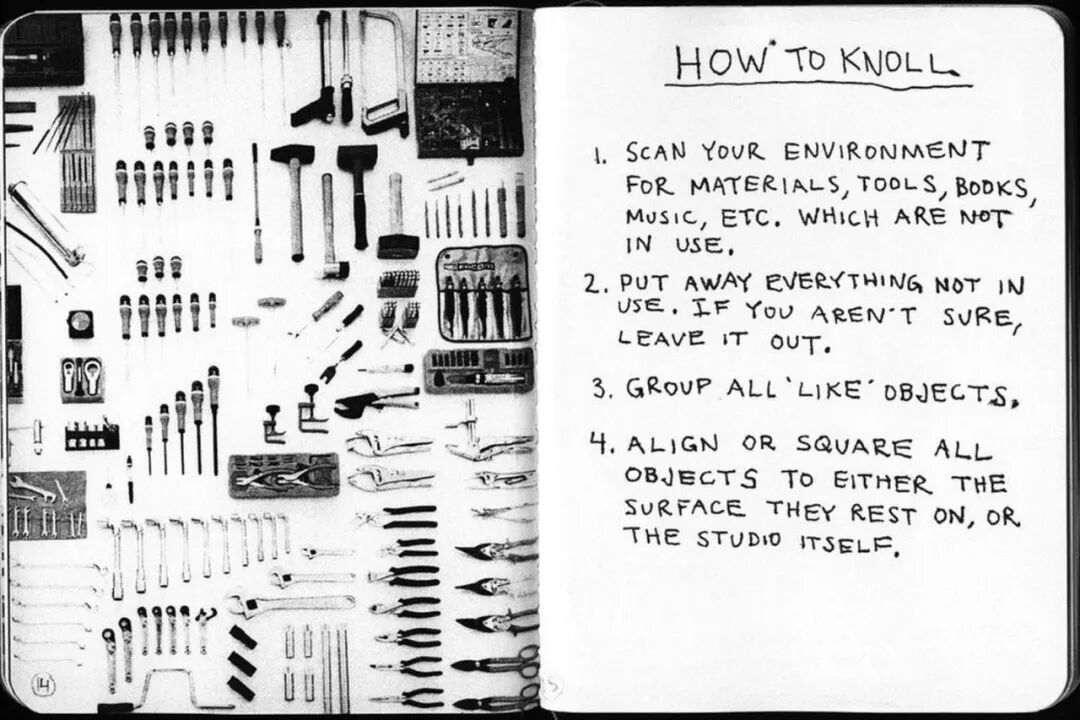 14
HOW TO KNOLL
1. SCAN YOUR ENVIRONMENT
FOR MATERIALS, TOOLS, BOOKS,
MUSIC, ETC. WHICH ARE NOT
IN USE.
2. PUT AWAY EVERYTHING NOT IN
USE. IF YOU AREN'T SURE,
LEAVE IT OUT.
3. GROUP ALL 'LIKE' OBJECTS.
4. ALIGN OR SQUARE ALL
OBJECTS TO EITHER THE
SURFACE THEY REST ON, OR
THE STUDIO ITSELF.